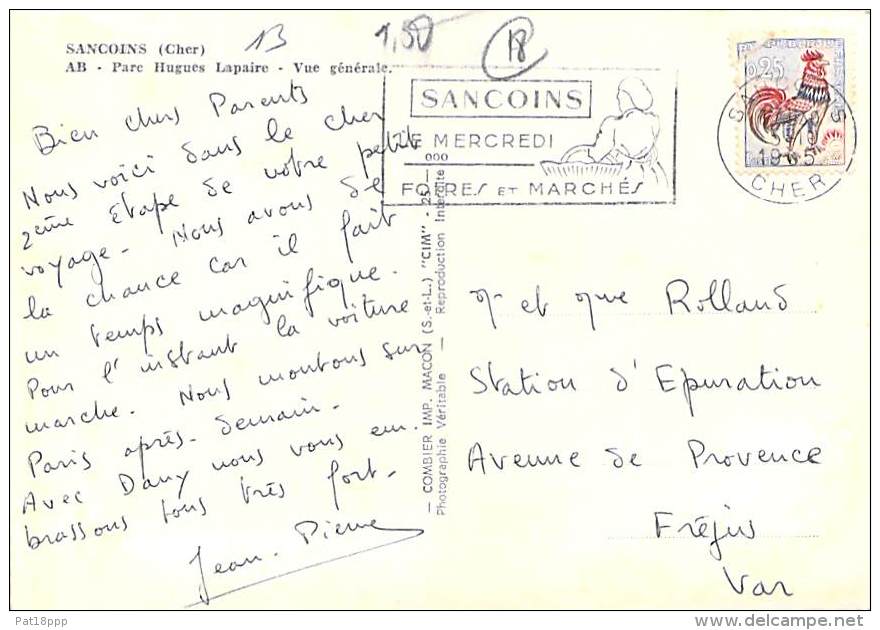 SANCOINS (Cher)
AB - Parc Hugues Lapaire - Vue générale.
13
1,50
18
Bien chers Parents
Nous voici dans le cher
2ème étape de notre petit
voyage - Nous avons de
la chance car il fait
un temps magnifique.
Pour l'instant la voiture
marche. Nous montons sur
Paris après-demain.
Avec Dany nous vous em-
brassons tous très fort.
Jean-Pierre
SANCOINS
LE MERCREDI
FOIRES ET MARCHÉS
0,25
SANCOINS
1965
CHER
— COMBIER IMP. MACON (S.-et-L.) "CIM" - 25 — 000
Photographie Véritable — Reproduction Interdite
Mr et Mme Rolland
Station d'Epuration
Avenue de Provence
Fréjus
Var
Pat18ppp
delcampe.net